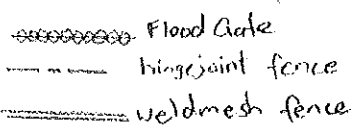 Flood Gate
hingejoint fence
weldmesh fence